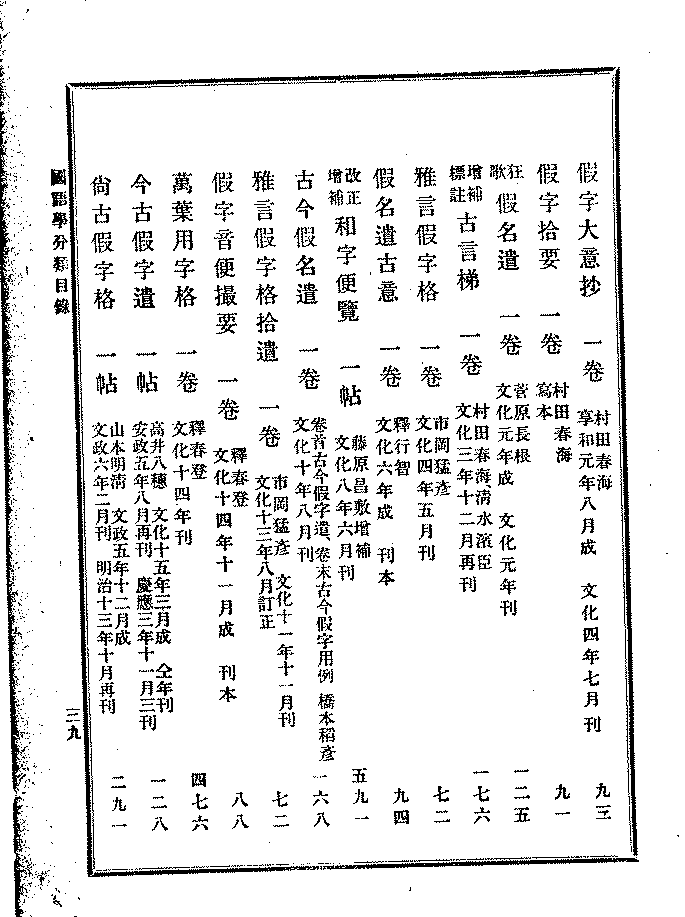 假字大意抄　一卷　村田春海　享和元年八月成　文化四年七月刊　九三
假字拾要　一卷　村田春海　寫本　九一
狂歌　假名遣　一卷　菅原長根　文化元年成　文化元年刊　一二五
增補標註　古言梯　一卷　村田春海清水濱臣　文化三年十二月再刊　一七六
雅言假字格　一卷　市岡猛彥　文化四年五月刊　七二
假名遣古意　一卷　釋行智　文化六年成　刊本　九四
改正增補　和字便覽　一帖　藤原昌敷增補　文化八年六月刊　五九一
古今假名遣　一卷　卷首古今假字遣、卷末古今假字用例　橋本稻彥　文化十年八月刊　一六八
雅言假字格拾遺　一卷　市岡猛彥　文化十一年十一月刊　文化十三年八月訂正　七二
假字音便撮要　一卷　釋春登　文化十四年十一月成　刊本　八八
萬葉用字格　一卷　釋春登　文化十四年刊　四七六
今古假字遣　一帖　高井八穗　文化十五年三月成　仝年刊　安政五年八月再刊　慶應三年十一月三刊　一二八
尙古假字格　一帖　山本明淸　文政五年十二月成　文政六年二月刊　明治十三年十月再刊　二九一
國語學分類目錄
三九